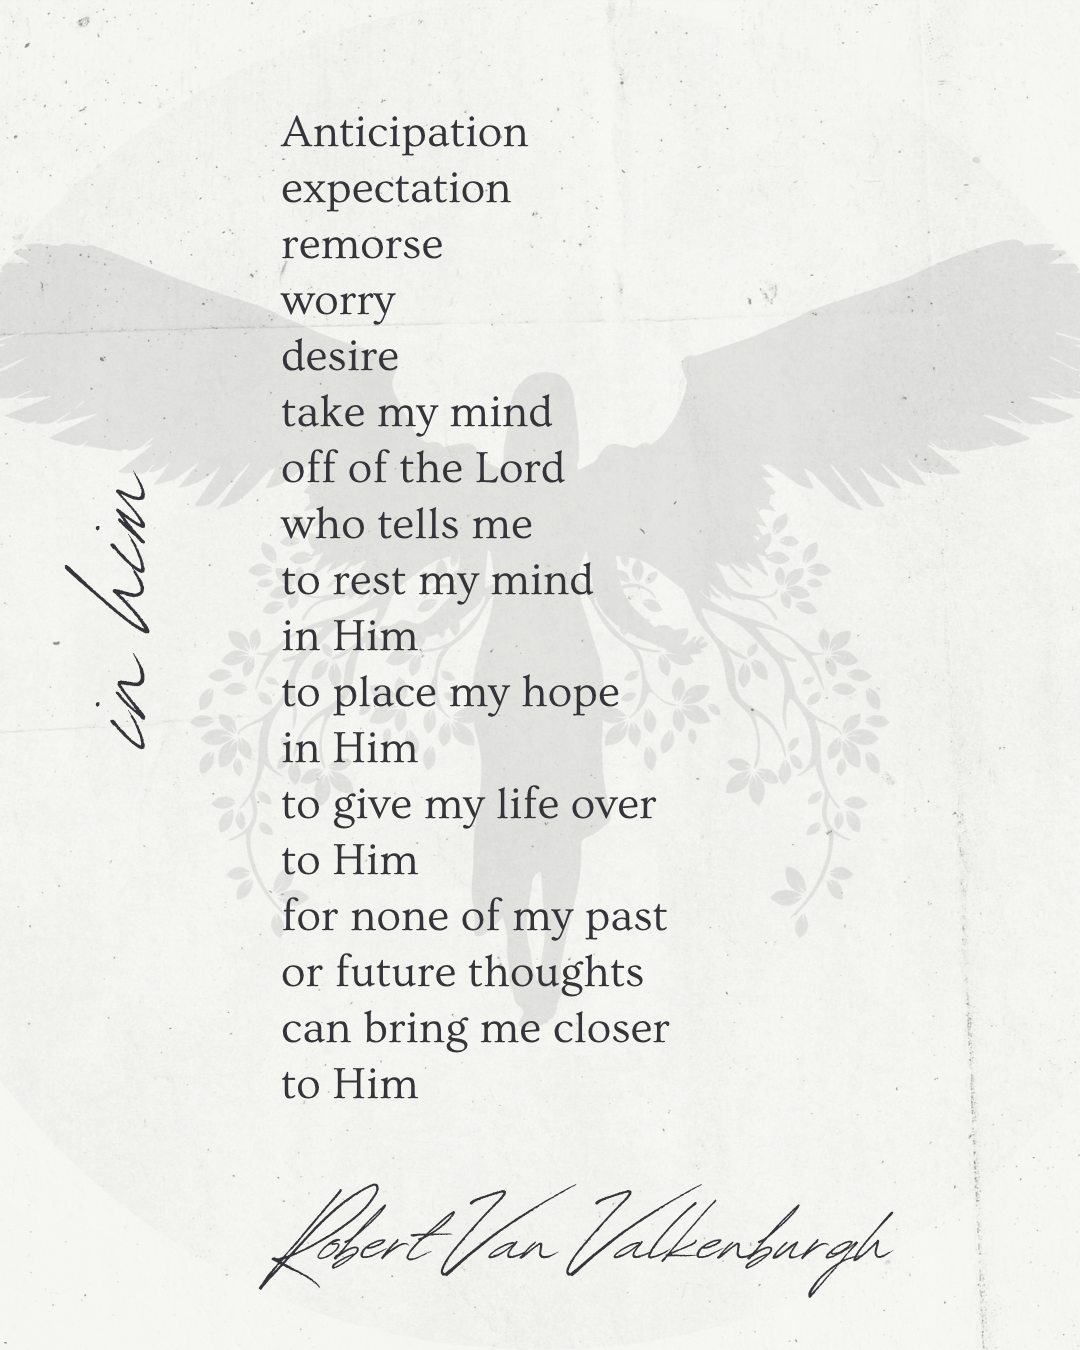 in him
Anticipation
expectation
remorse
worry
desire
take my mind
off of the Lord
who tells me
to rest my mind
in Him
to place my hope
in Him
to give my life over
to Him
for none of my past
or future thoughts
can bring me closer
to Him
Robert Van Valkenburgh